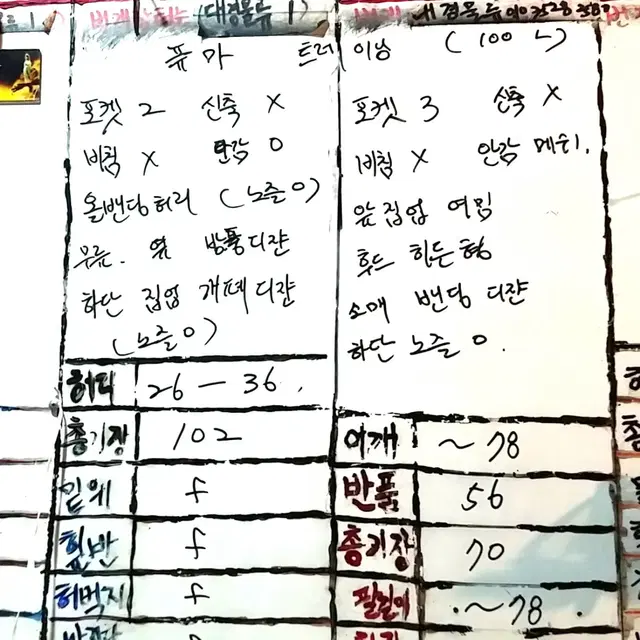 (대경물류 1)
대경물류 010 3528 3587
퓨마 트레이닝 (100 ~)
포켓 2 신축 X
비침 X 안감 O
올밴딩허리 (노즐O)
무릎. 옆 방풍디쟌
하단 집업 개폐디쟌
(노즐O)
허리 26 - 36.
총기장 102
밑위 f
힙반 f
허벅지 f
포켓 3 신축 X
비침 X 안감 메쉬.
앞집업 여밈
후드 히든형
소매 밴딩 디쟌
하단 노즐 O.
어깨 ~78
반품 56
총기장 70
팔길이 ~78